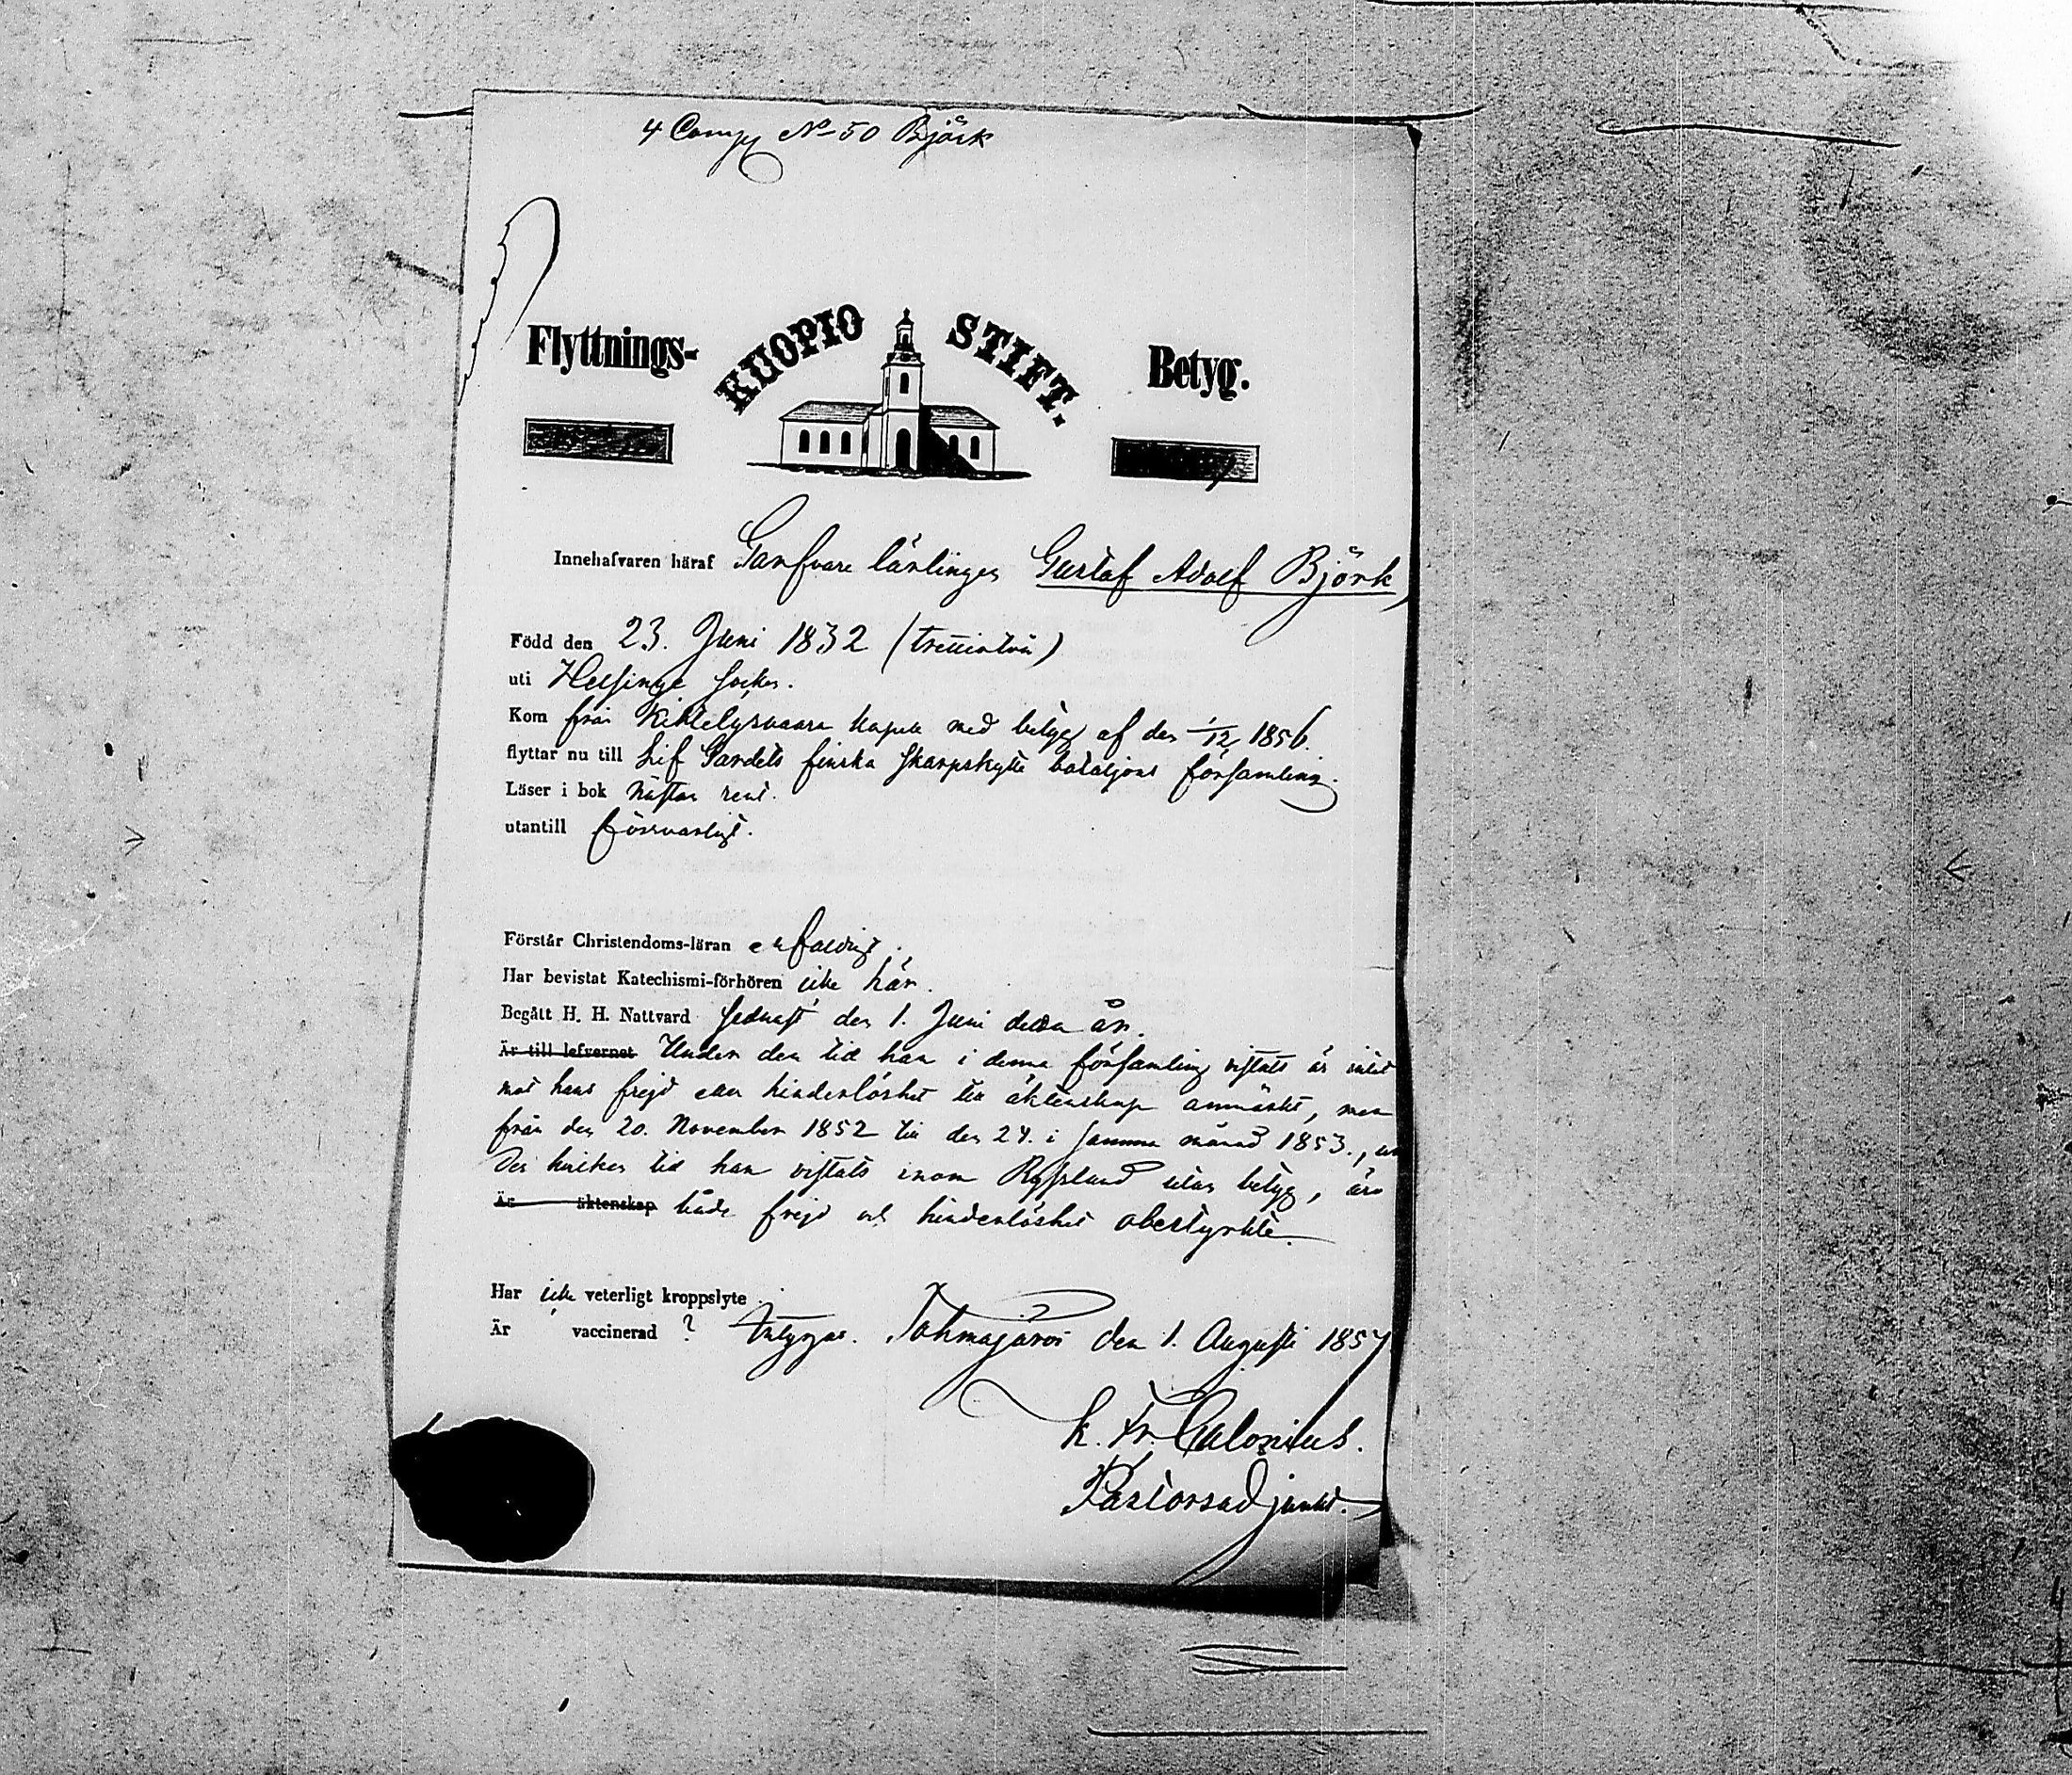 4 Comp N° 50 Björk
Flyttnings- KUOPIO STIFT. Betyg.
Innehafvaren häraf Garfvare lärlingen Gustaf Adolf Björk,
Född den 23. Juni 1832 (trettiotvå)
uti Helsinge socken.
Kom från Kihtelysvaara kapell med betyg af den 1/12 1856.
flyttar nu till Lif Gardets finska skarpskytte bataljons församling.
Läser i bok nästan rent.
utantill försvarligt.
Förstår Christendoms-läran enfaldigt.
Har bevistat Katechismi-förhören icke här.
Begått H. H. Nattvard sednast den 1. Juni detta år.
Är till lefvernet Under den tid han i denna församling vistats är intet
mot hans frejd eller hinderlöshet till äktenskap anmärkt, men
från den 20. November 1852 till den 24. i samma månad 1853.,
hvilken tid han vistats inom Ryssland utan betyg, äro
Är äktenskap både frejd och hinderlöshet obestyrkte.
Har icke veterligt kroppslyte.
Är vaccinerad ? Intygar. Tohmajärvi den 1. Augusti 1857
K. Fr. Calonius.
Pastorsadjunkt.